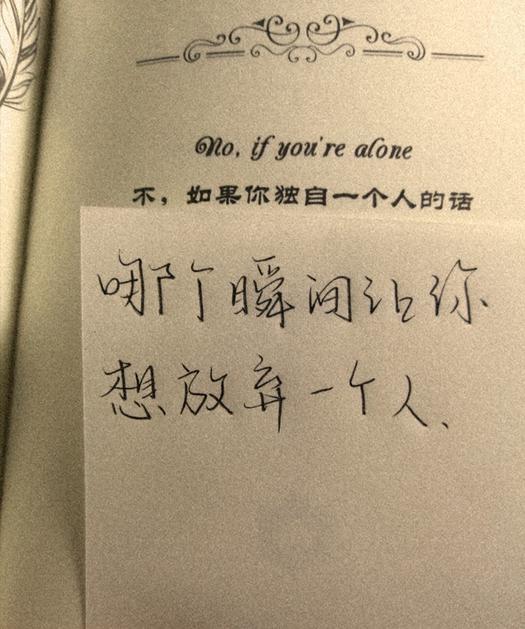 No, if you're alone
不，如果你独自一个人的话
哪个瞬间让你
想放弃一个人、